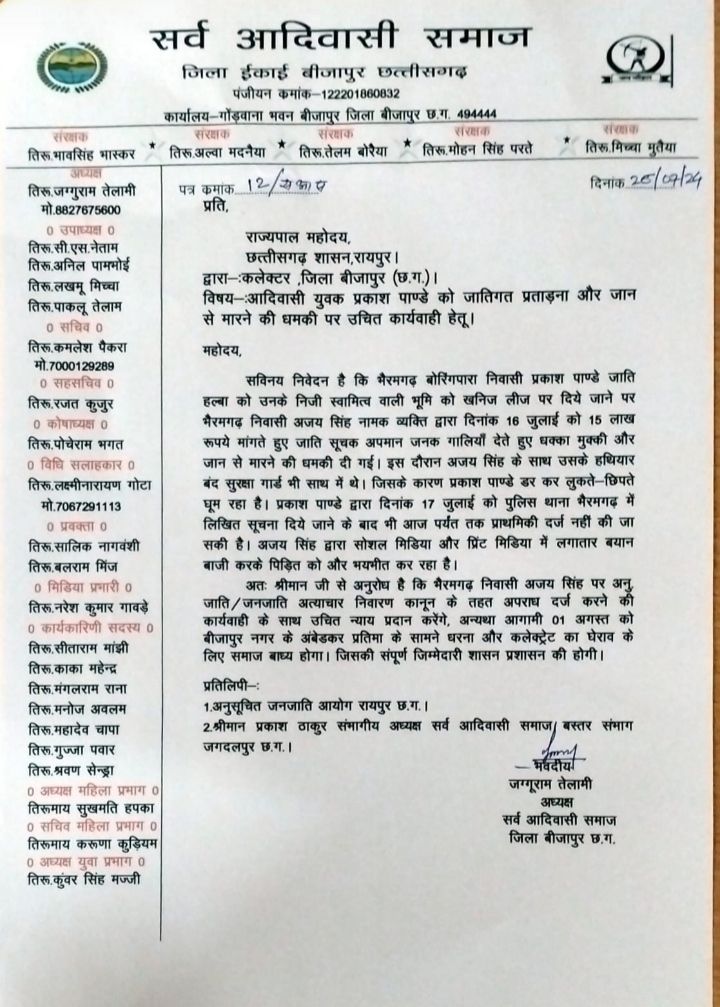 सर्व आदिवासी समाज
जिला ईकाई बीजापुर छत्तीसगढ़
पंजीयन कमांक–122201860832
कार्यालय–गोंड़वाना भवन बीजापुर जिला बीजापुर छ.ग. 494444
संरक्षक संरक्षक संरक्षक संरक्षक संरक्षक
तिरू.भावसिंह भास्कर * तिरू.अल्वा मदनैया * तिरू.तेलम बोरैया * तिरू.मोहन सिंह परते * तिरू.मिच्चा मुतैया
अध्यक्ष
तिरू.जग्गुराम तेलामी
मो.8827675600
0 उपाध्यक्ष 0
तिरू.सी.एस.नेताम
तिरू.अनिल पामभोई
तिरू.लखमू मिच्चा
तिरू.पाकलू तेलाम
0 सचिव 0
तिरू.कमलेश पैकरा
मो.7000129289
0 सहसचिव 0
तिरू.रजत कुजुर
0 कोषाध्यक्ष 0
तिरू.पोचेराम भगत
0 विधि सलाहकार 0
तिरू.लक्ष्मीनारायण गोटा
मो.7067291113
0 प्रवक्ता 0
तिरू.सालिक नागवंशी
तिरू.बलराम मिंज
0 मिडिया प्रभारी 0
तिरू.नरेश कुमार गावड़े
0 कार्यकारिणी सदस्य 0
तिरू.सीताराम मांझी
तिरू.काका महेन्द्र
तिरू.मंगलराम राना
तिरू.मनोज अवलम
तिरू.महादेव चापा
तिरू.गुज्जा पवार
तिरू.श्रवण सेन्ड्रा
0 अध्यक्ष महिला प्रभाग 0
तिरूमाय सुखमति हपका
0 सचिव महिला प्रभाग 0
तिरूमाय करूणा कुड़ियम
0 अध्यक्ष युवा प्रभाग 0
तिरू.कुंवर सिंह मज्जी
पत्र कमांक 12/
दिनांक /07/24
प्रति,
राज्यपाल महोदय,
छत्तीसगढ़ शासन,रायपुर।
द्वारा–:कलेक्टर ,जिला बीजापुर (छ.ग.)।
विषय–:आदिवासी युवक प्रकाश पाण्डे को जातिगत प्रताड़ना और जान
से मारने की धमकी पर उचित कार्यवाही हेतू।
महोदय,
सविनय निवेदन है कि भैरमगढ़ बोरिंगपारा निवासी प्रकाश पाण्डे जाति
हल्बा को उनके निजी स्वामित्व वाली भूमि को खनिज लीज पर दिये जाने पर
भैरमगढ़ निवासी अजय सिंह नामक व्यक्ति द्वारा दिनांक 16 जुलाई को 15 लाख
रूपये मांगते हुए जाति सूचक अपमान जनक गालियाँ देते हुए धक्का मुक्की और
जान से मारने की धमकी दी गई। इस दौरान अजय सिंह के साथ उसके हथियार
बंद सुरक्षा गार्ड भी साथ में थे। जिसके कारण प्रकाश पाण्डे डर कर लुकते–छिपते
घूम रहा है। प्रकाश पाण्डे द्वारा दिनांक 17 जुलाई को पुलिस थाना भैरमगढ़ में
लिखित सूचना दिये जाने के बाद भी आज पर्यंत तक प्राथमिकी दर्ज नहीं की जा
सकी है। अजय सिंह द्वारा सोशल मिडिया और प्रिंट मिडिया में लगातार बयान
बाजी करके पिड़ित को और भयभीत कर रहा है।
अतः श्रीमान जी से अनुरोध है कि भैरमगढ़ निवासी अजय सिंह पर अनु.
जाति/जनजाति अत्याचार निवारण कानून के तहत अपराध दर्ज करने की
कार्यवाही के साथ उचित न्याय प्रदान करेंगे, अन्यथा आगामी 01 अगस्त को
बीजापुर नगर के अंबेडकर प्रतिमा के सामने धरना और कलेक्ट्रेट का घेराव के
लिए समाज बाध्य होगा। जिसकी संपूर्ण जिम्मेदारी शासन प्रशासन की होगी।
प्रतिलिपी–:
1.अनुसूचित जनजाति आयोग रायपुर छ.ग.।
2.श्रीमान प्रकाश ठाकुर संभागीय अध्यक्ष सर्व आदिवासी समाज बस्तर संभाग
जगदलपुर छ.ग.।
भवदीय
जग्गूराम तेलामी
अध्यक्ष
सर्व आदिवासी समाज
जिला बीजापुर छ.ग.